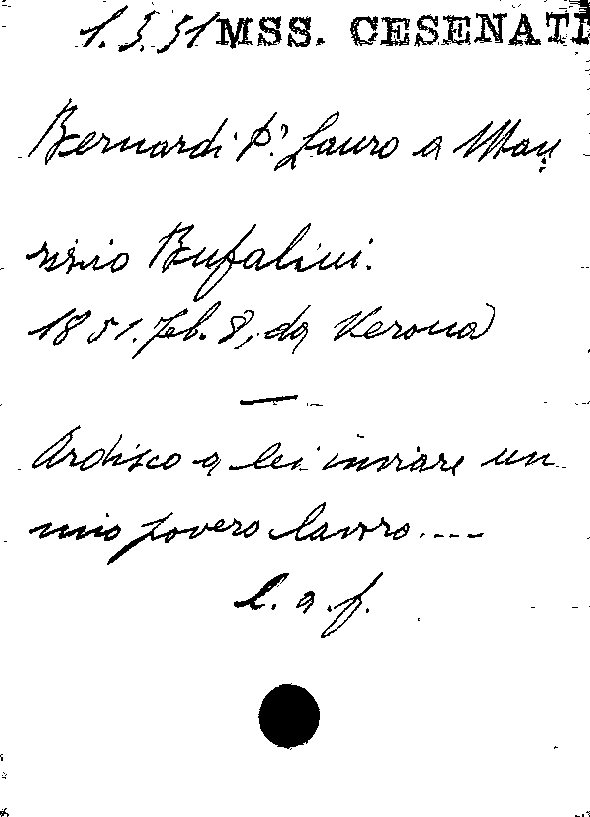 1.5.51 MSS. CESENATI
Bernardi D.r Lauro a Mau
rizio Bufalini.
1851. Feb. 8, da Verona
—
Ardisco a lei inviare un
mio povero lavoro....
l. a. f.